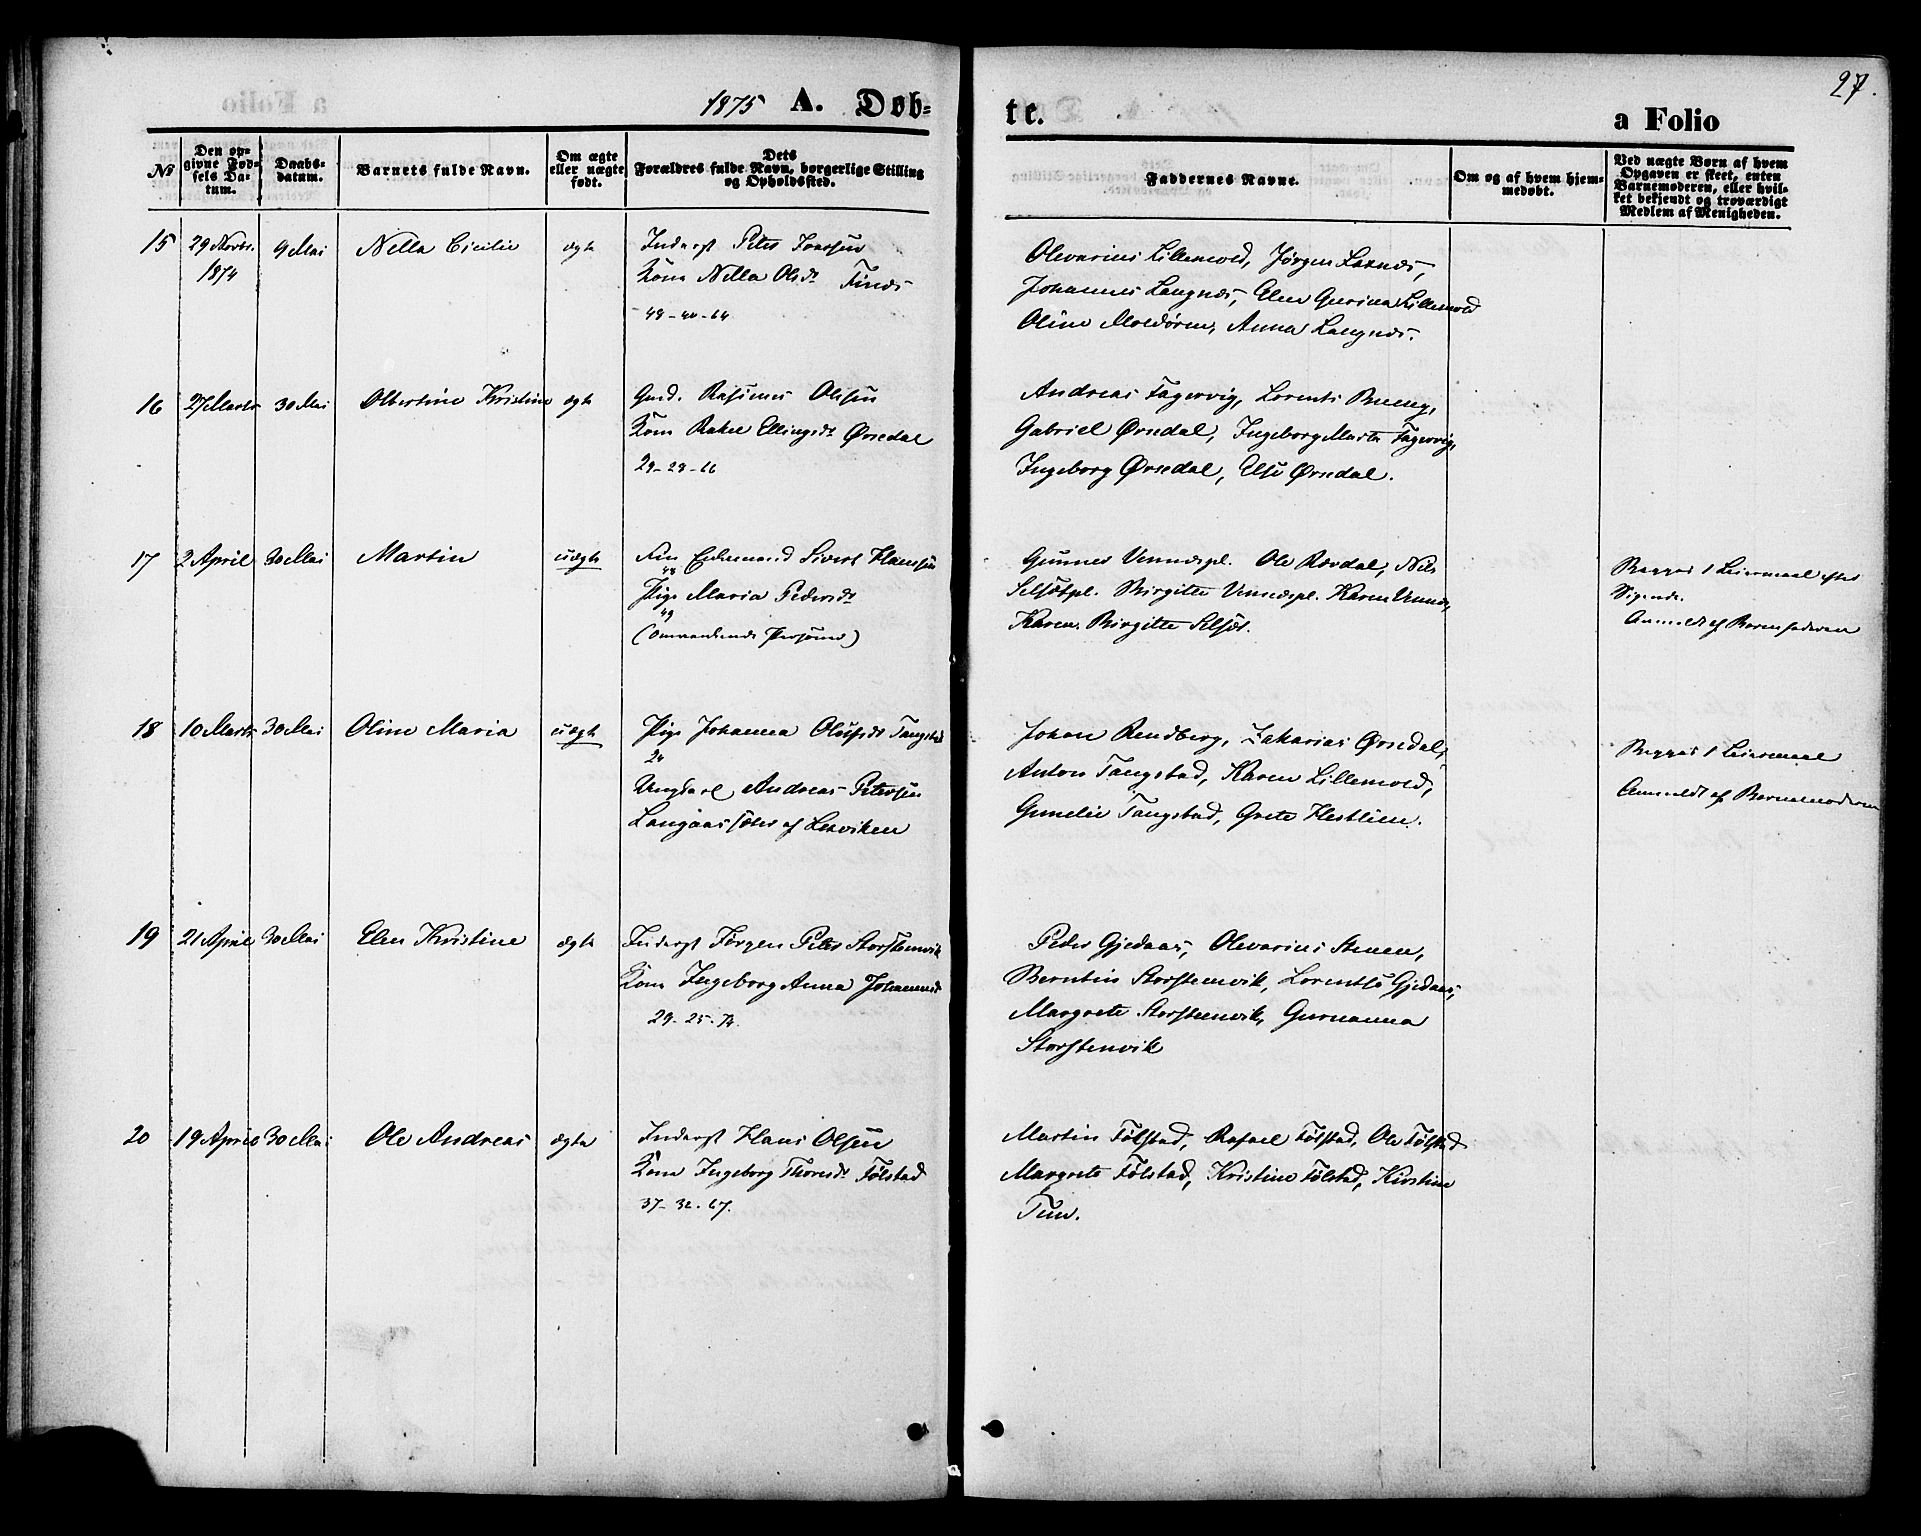 27.
1875 A. Døb-
te.
a Folio
№
Den op-
givne Fød-
sels Da-
tum.
Daabs-
datum.
Barnets fulde Navn.
Om ægte
eller uægte
født.
Dets
Forældres fulde Navn, borgerlige Stilling
og Opholdssted.
Faddernes Navne.
Om og af hvem hjem-
medøbt.
Ved uægte Børn af hvem
Opgaven er skeet, enten
Barnemoderen, eller hvil-
ket bekjendt og troværdigt
Medlem af Menigheden.
15
29 Novbr.
1874
9 Mai
Nella Cicilie
ægte
Inderst Peter
Kone Nella Olsdr Finæs
Olevarius Lillemold, Jørgen Laxnæs,
Johannes Langnæs, Elen Gurina Lillemold
Oline Moldøren, Anna Langnæs.
16
27 Marts
30 Mai
Olbertine Kristine
ægte
Gaard. Rasmus Olsen
Kone Rakel Ellingsdr Ørsedal
29-28-66
Andreas Fagervig, Lorents
Gabriel Ørsedal, Ingeborg Marta Fagervig,
Ingeborg Ørsedal, Else Ørsedal.
17
2 April
30 Mai
Martin
uægte
Fin Enkemand Sivert Hansen
48
Pige Maria Pedersdr
49
(Omvankende Personer)
Gunner Vennæspl. Ole Rørdal, Nils
Selsøtpl. Birgitte Vennæspl. Karen Vennæs,
Karen Birgitte
Begges 1 Leiermaal efter
Sigende.
Anmeldt af Barnefaderen
18
10 Marts
30 Mai
Oline Maria
uægte
Pige Johanna Olufsdr Tangstad
24
Ungkarl Andreas Petersen
Langaassæter af Leirviken
Johan Rendberg, Zakarias Ørsedal,
Anton Tangstad, Karen Lillemold,
Gunelie Tangstad, Grete Hestlien.
Begges 1 Leiermaal
Anmeldt af Barnemoderen
19
21 April
30 Mai
Elen Kristine
ægte
Inderst Jørgen Peter Storstenvik
Kone Ingeborg Anna Johannesdr
29-25-74.
Peder Gjedaas, Olevarius Stenen,
Berntin Storstenvik, Lorentse Gjedaas,
Margrete Storstenvik, Gurianna
Storstenvik
20
19 April
30 Mai
Ole Andreas
ægte
Inderst Hans Olsen
Kone Ingeborg Thoresdr Følstad
37-32-67.
Martin Følstad, Rafael Følstad, Ole Følstad
Margrete Følstad, Kristine Følstad, Kirstine